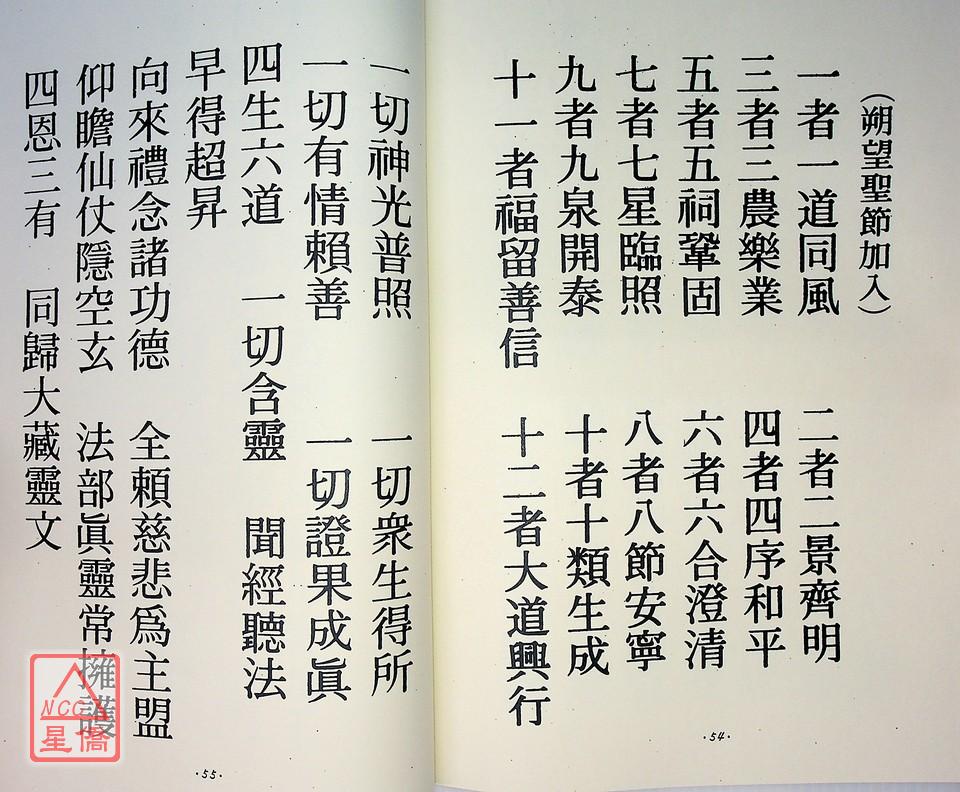 （朔望聖節加入）
一者一道同風　二者二景齊明
三者三農樂業　四者四序和平
五者五祠鞏固　六者六合澄清
七者七星臨照　八者八節安寧
九者九泉開泰　十者十類生成
十一者福留善信　十二者大道興行
·54·
一切神光普照　一切衆生得所
一切有情賴善　一切證果成眞
四生六道　一切含靈　聞經聽法
早得超昇
向來禮念諸功德　全賴慈悲爲主盟
仰瞻仙仗隱空玄　法部眞靈常擁護
四恩三有　同歸大藏靈文
·55·
NCC
星僑